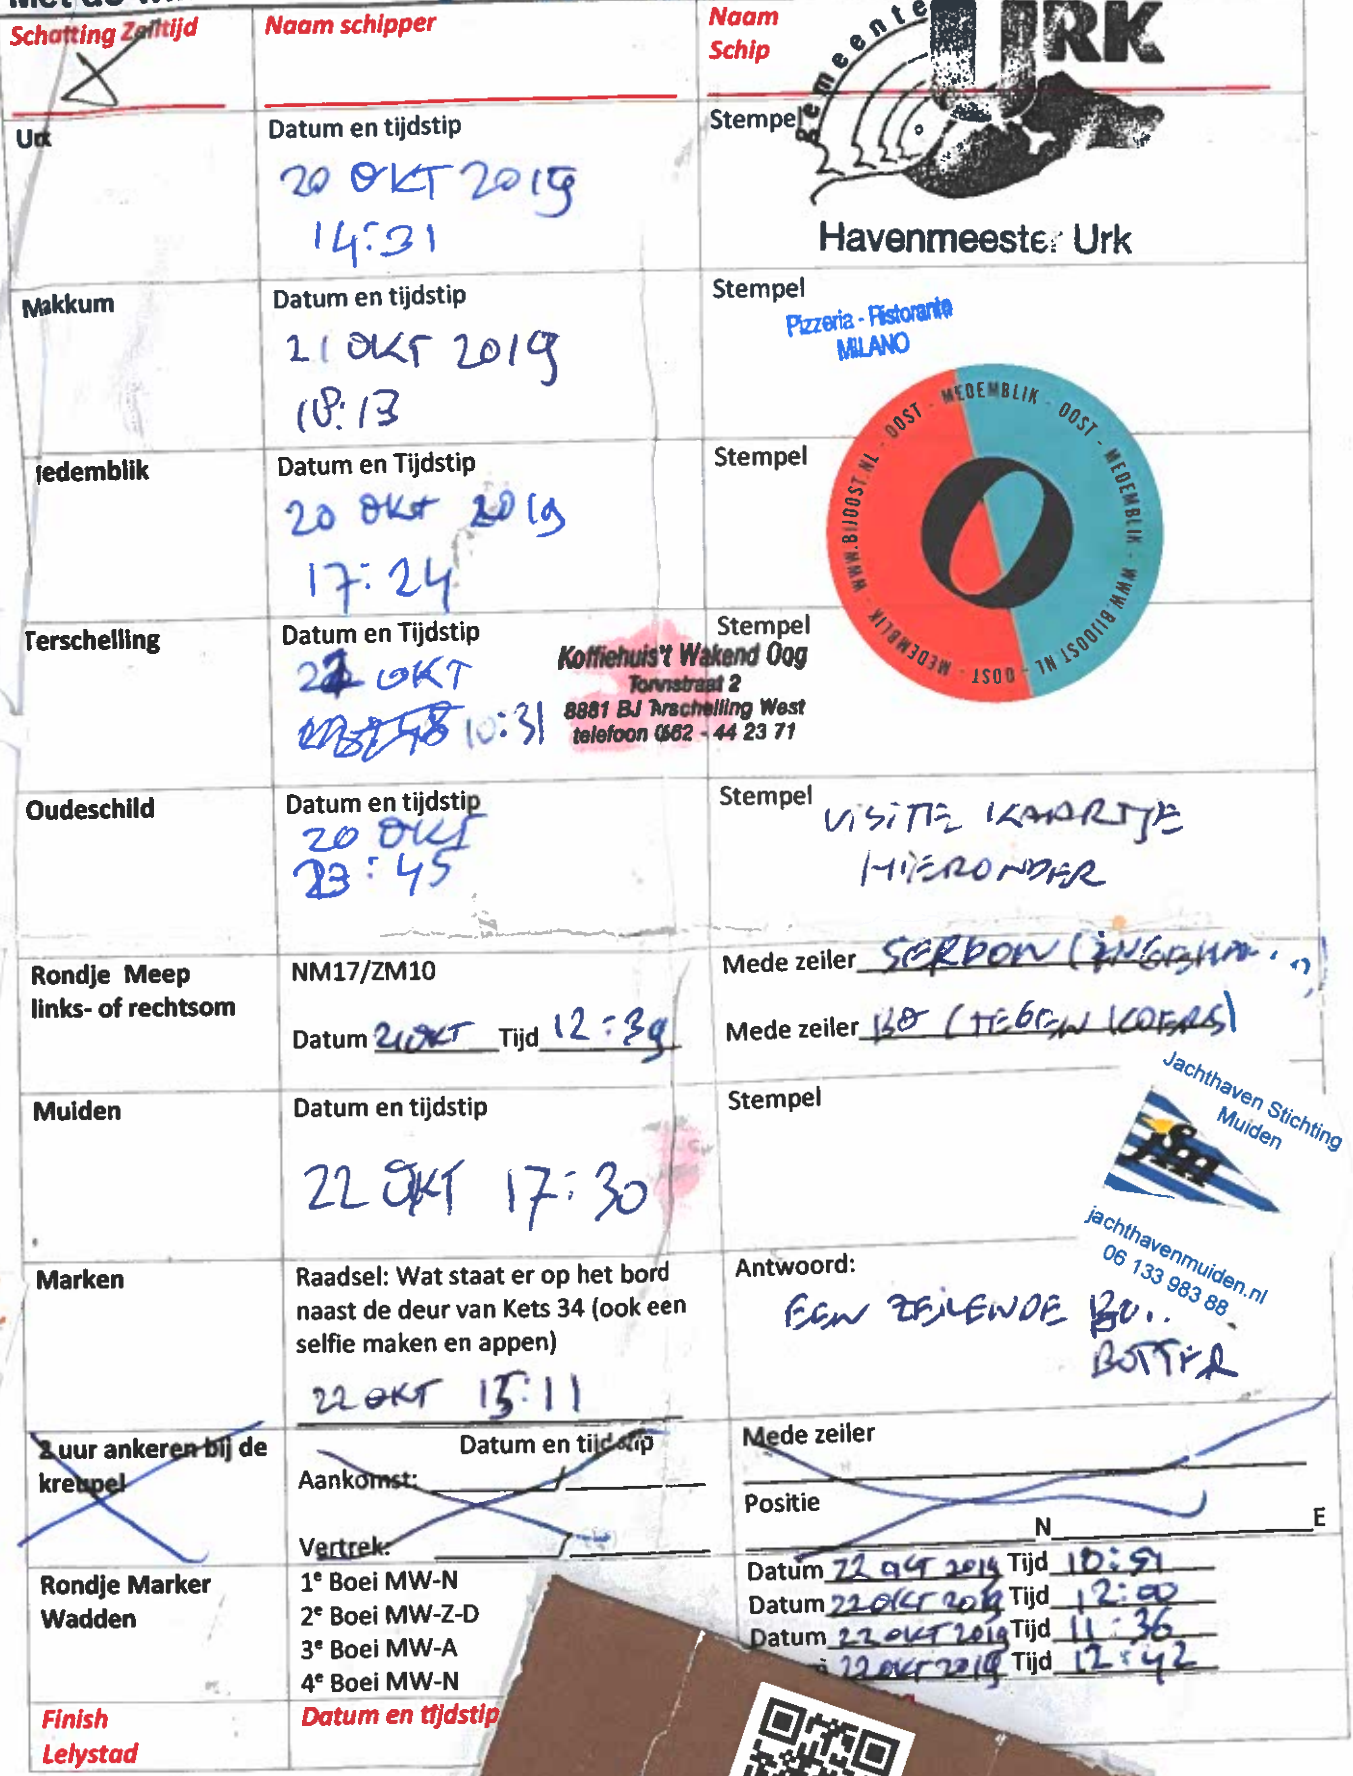 Schatting Zeiltijd
Naam schipper
Naam
Schip
gemeente
URK
Havenmeester Urk
Urk
Datum en tijdstip
20 OKT 2019
14:31
Stempel
Makkum
Datum en tijdstip
21 OKT 2019
18:13
Stempel
Pizzeria - Ristorante
MILANO
edemblik
Datum en Tijdstip
20 OKT 2019
17:24
Stempel
MEDEMBLIK - OOST - MEDEMBLIK - WWW.BIJOOST.NL - OOST - MEDEMBLIK - WWW.BIJOOST.NL - OOST -
Terschelling
Datum en Tijdstip
OKT
10:31
Stempel
Koffiehuis 't Wakend Oog
Torenstraat 2
8881 BJ Terschelling West
telefoon 0562 - 44 23 71
Oudeschild
Datum en tijdstip
20 OKT
23:45
Stempel
VISITE KAARTJE
HIERONDER
Rondje Meep
links- of rechtsom
NM17/ZM10
Datum 21 OKT Tijd 12:39
Mede zeiler
Mede zeiler BO (TEGEN KOERS)
Muiden
Datum en tijdstip
22 OKT 17:30
Stempel
Jachthaven Stichting
Muiden
jsm
jachthavenmuiden.nl
06 133 983 88
Marken
Raadsel: Wat staat er op het bord
naast de deur van Kets 34 (ook een
selfie maken en appen)
22 OKT 15:11
Antwoord:
EEN ZEILENDE BO..
BOTTER
2 uur ankeren bij de
kreupel
Datum en tijdstip
Aankomst: /
Vertrek: /
Mede zeiler
Positie
N E
Rondje Marker
Wadden
1e Boei MW-N
2e Boei MW-Z-D
3e Boei MW-A
4e Boei MW-N
Datum 22 OKT 2019 Tijd 10:51
Datum 22 OKT 2019 Tijd 12:00
Datum 22 OKT 2019 Tijd 11:36
22 OKT 2019 Tijd 12:42
Finish
Lelystad
Datum en tijdstip